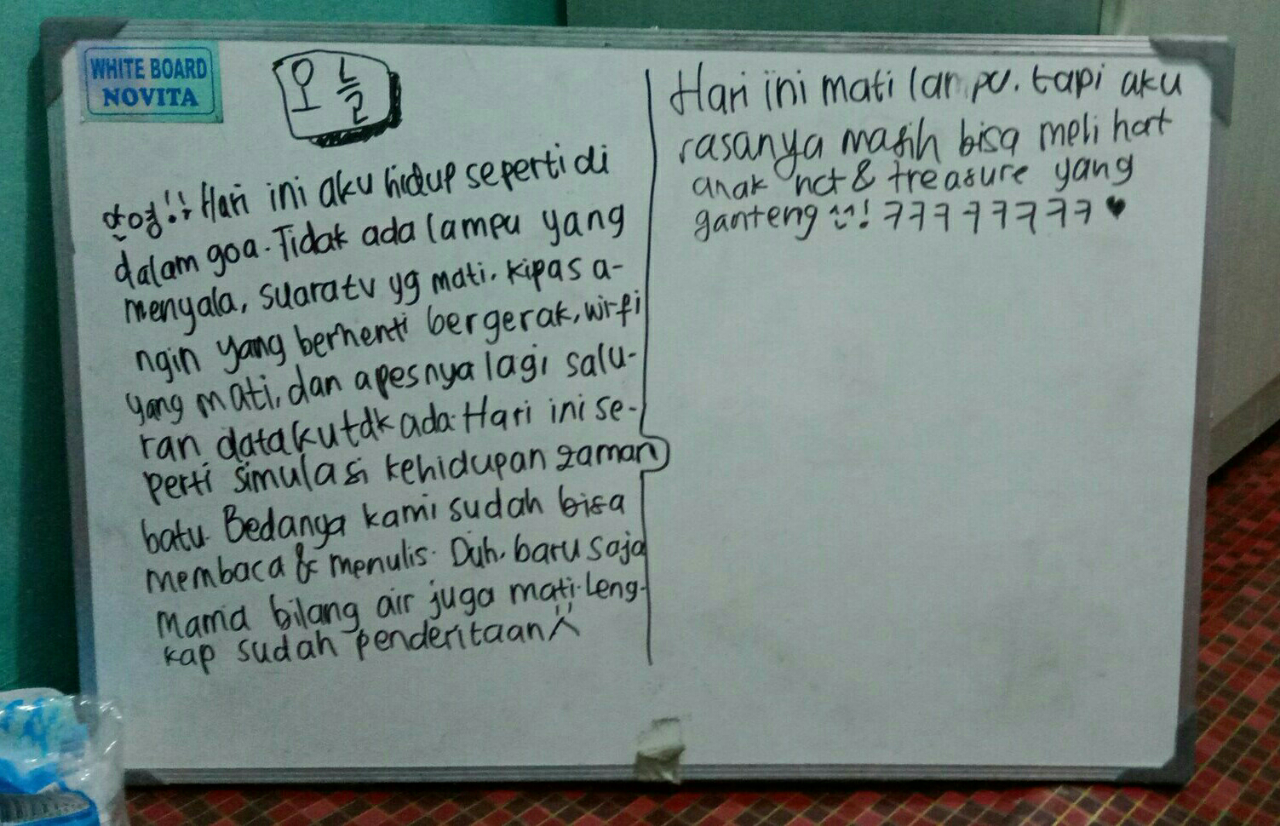 WHITE BOARD
NOVITA
오늘
안녕!! Hari ini aku hidup seperti di
dalam goa. Tidak ada lampu yang
menyala, suara tv yg mati. kipas a-
ngin yang berhenti bergerak, wi-fi
yang mati, dan apesnya lagi salu-
ran dataku tdk ada. Hari ini se-
perti simulasi kehidupan zaman
batu. Bedanya kami sudah bisa
membaca & menulis. Duh, baru saja
Mama bilang air juga mati. Leng-
kap sudah penderitaan
Hari ini mati lampu. tapi aku
rasanya masih bisa melihat
anak nct & treasure yang
ganteng ^^! ㅋㅋㅋㅋㅋㅋㅋㅋ ♥